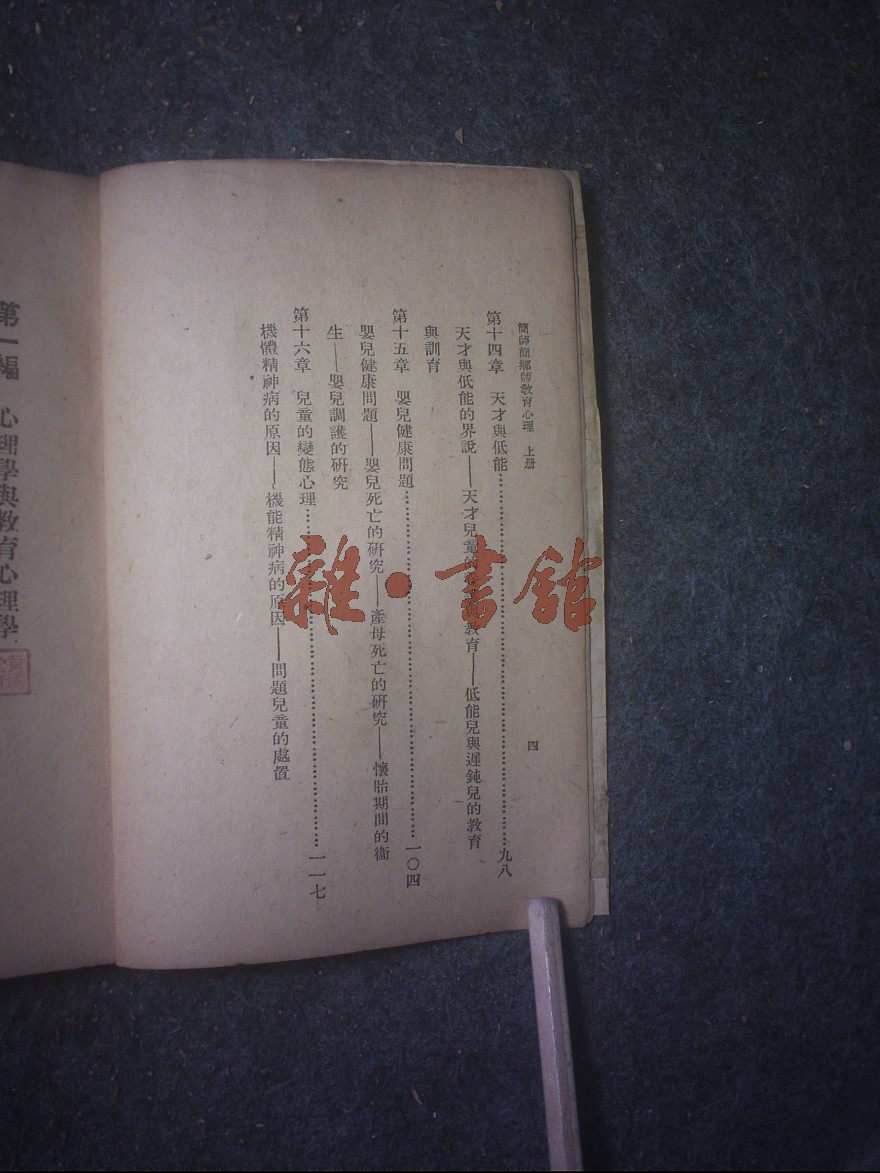 簡師簡鄉師教育心理　上册
四
第十四章　天才與低能……九八
天才與低能的界說——天才兒童的教育——低能兒與遲鈍兒的教育
與訓育
第十五章　嬰兒健康問題……一〇四
嬰兒健康問題——嬰兒死亡的研究——產母死亡的研究——懷胎期間的衞
生——嬰兒調護的研究
第十六章　兒童的變態心理……一一七
機體精神病的原因——機能精神病的原因——問題兒童的處置
第一編　心理學與教育心理學
雜·書館